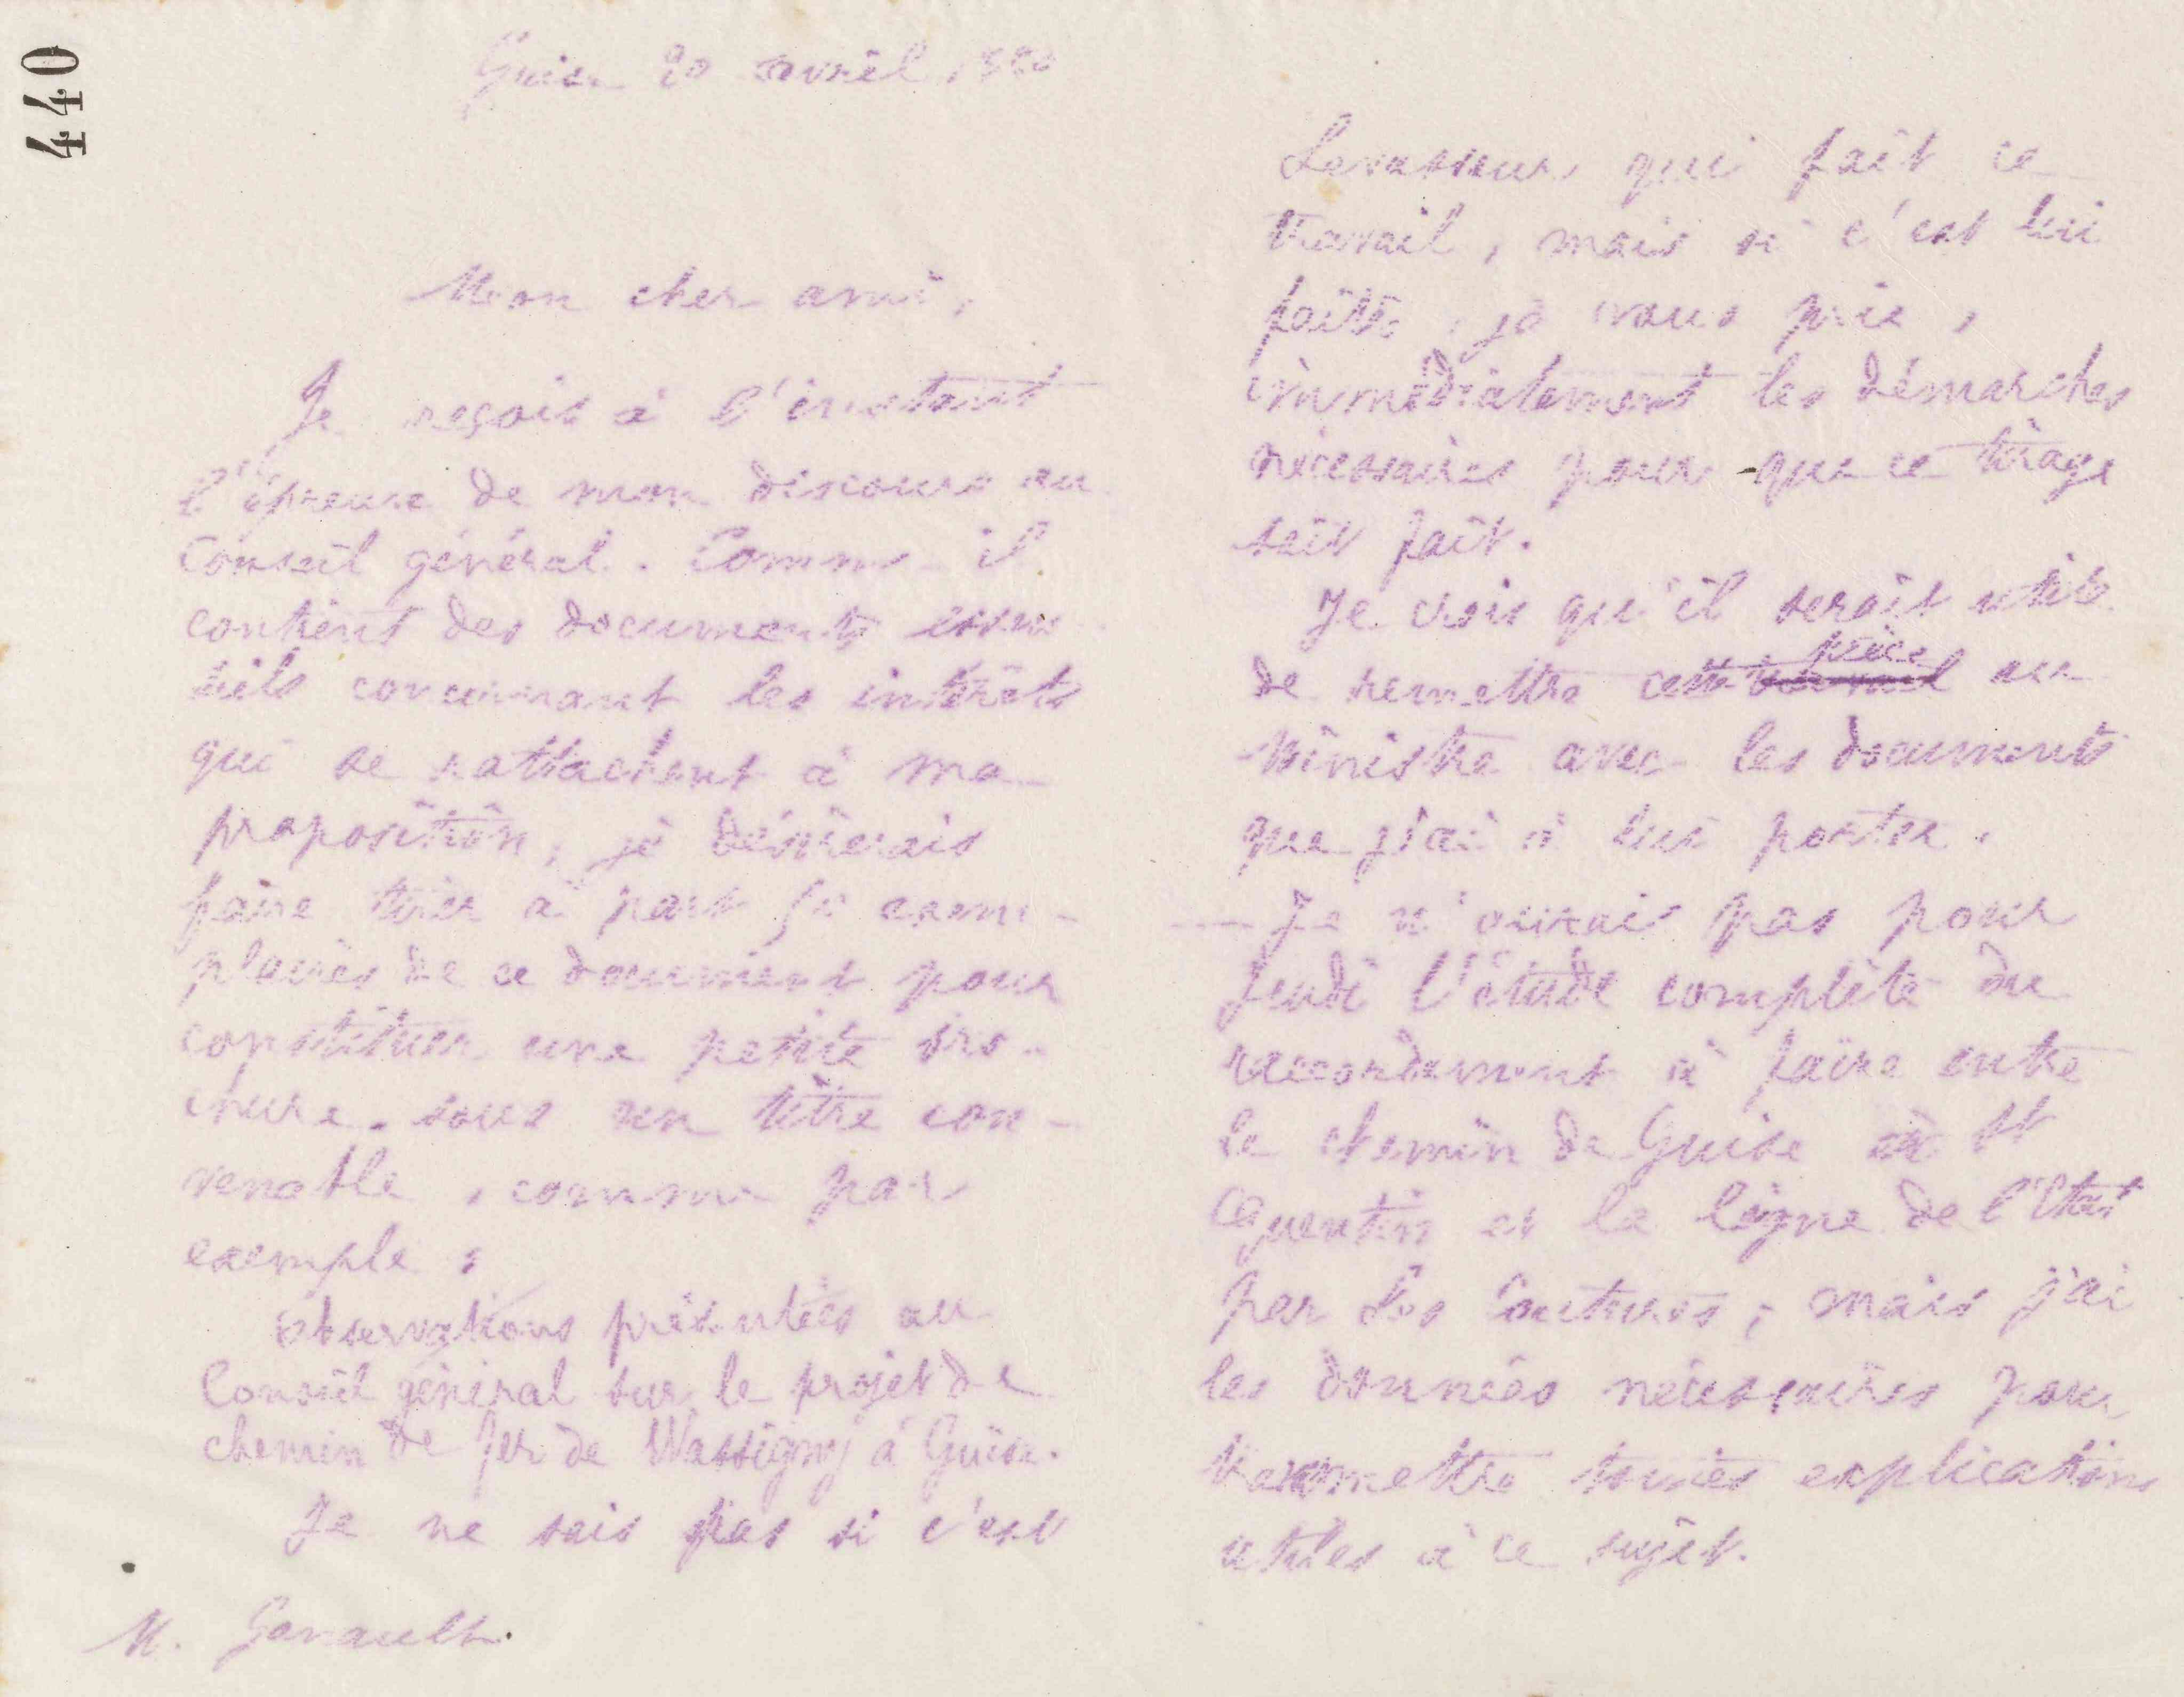 440
Guise 20 avril 1880
Mon cher ami,
Je reçois à l'instant
l'épreuve de mon discours au
Conseil général. Comme il
contient des documents essen
tiels concernant les intérêts
qui se rattachent à ma
proposition, je désirerais
faire tirer à part 50 exem-
plaires de ce document pour
constituer une petite bro-
chure. sous un titre con-
venable, comme par
exemple :
Observations présentées au
Conseil général sur le projet de
chemin de fer de Wassigny à Guise.
Je ne sais pas si c'est
M. Ganault.
Levasseur qui fait ce
travail, mais si c'est lui
faites, je vous prie,
immédiatement les démarches
nécessaires pour que ce tirage
soit fait.
Je crois qu'il serait utile
de remettre cette pièce au
Ministre avec les documents
que j'ai à lui porter.
Je n'aurai pas pour
Jeudi l'étude complète du
raccordement à faire entre
le chemin de Guise à St
Quentin et la ligne de l'Etat
par les Coutures ; mais j'ai
les données nécessaires pour
transmettre toutes explications
utiles à ce sujet.